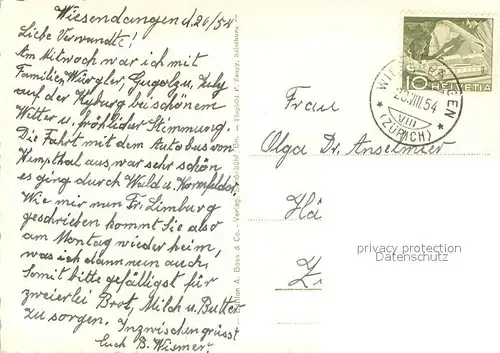 Wiesendangen d. 20/54
Liebe Verwandte!
Am Mittwoch war ich mit
Familien Würgler, Gugolz u. July
auf der Kyburg bei schönem
Wetter u. fröhlicher Stimmung.
Die Fahrt mit dem Autobus von
Humpthal aus, war sehr schön
es ging durch Wald u. Kornfelder.
Wie mir nun Fr. Limburg
geschrieben kommt Sie also
am Montag wieder heim,
was ich dann nun auch.
Somit bitte gefälligst für
zweierlei Brot, Milch u. Butter
zu sorgen. Inzwischen grüsst
Euch B. Wismer.
Edition A. Boss & Co. - Verlag
HELVETIA
10
VIII.54
VIII
(ZÜRICH)
Frau
Olga Dr. Anselmier
Hä
Z
privacy protection
Datenschutz